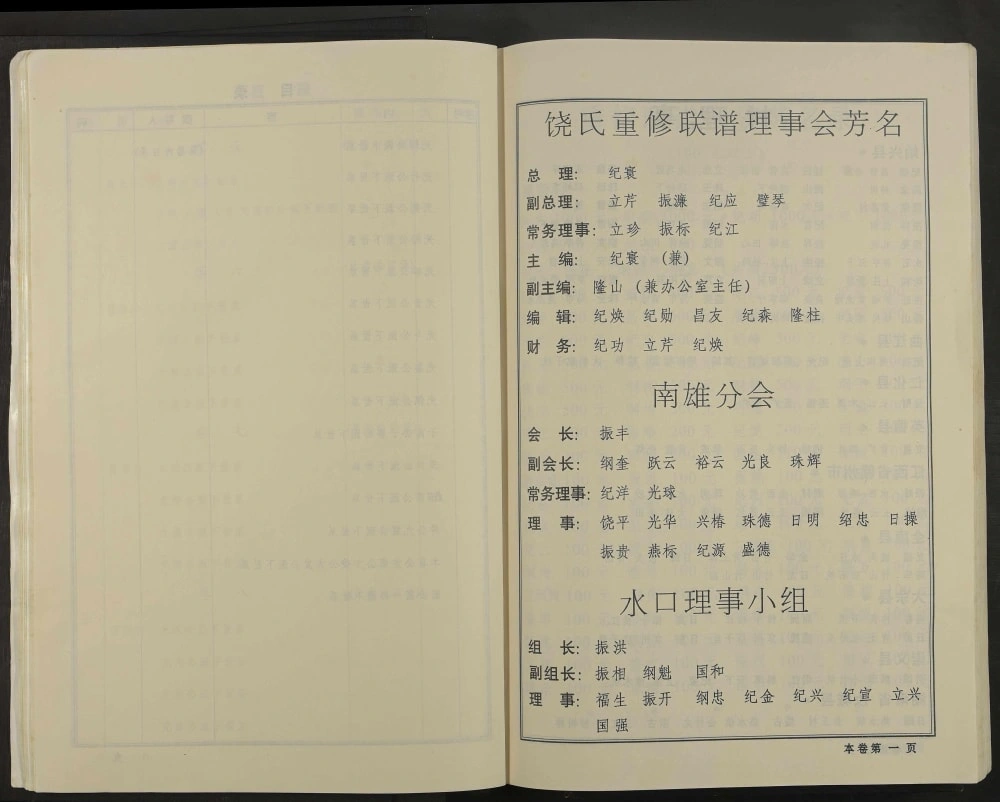 饶氏重修联谱理事会芳名
总 理： 纪寰
副总理： 立芹 振濂 纪应 璧琴
常务理事：立珍 振标 纪江
主 编： 纪寰 (兼)
副主编： 隆山 (兼办公室主任)
编 辑： 纪焕 纪勋 昌友 纪森 隆柱
财 务： 纪功 立芹 纪焕
南雄分会
会 长： 振丰
副会长： 纲奎 跃云 裕云 光良 珠辉
常务理事：纪洋 光球
理 事： 饶平 光华 兴椿 珠德 日明 绍忠 日操
振贵 燕标 纪源 盛德
水口理事小组
组 长： 振洪
副组长： 振相 纲魁 国和
理 事： 福生 振开 纲忠 纪金 纪兴 纪宣 立兴
国强
本卷第 一 页